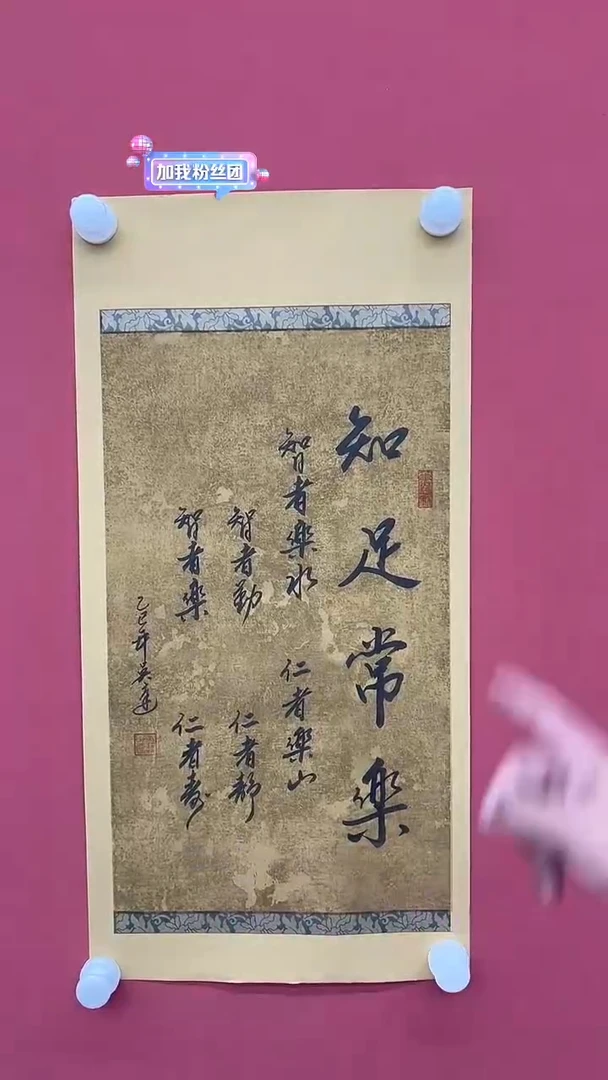 加我粉丝团
知足常樂
智者樂水 仁者樂山
智者勤 仁者靜
智者樂 仁者壽
乙巳年吴蓬